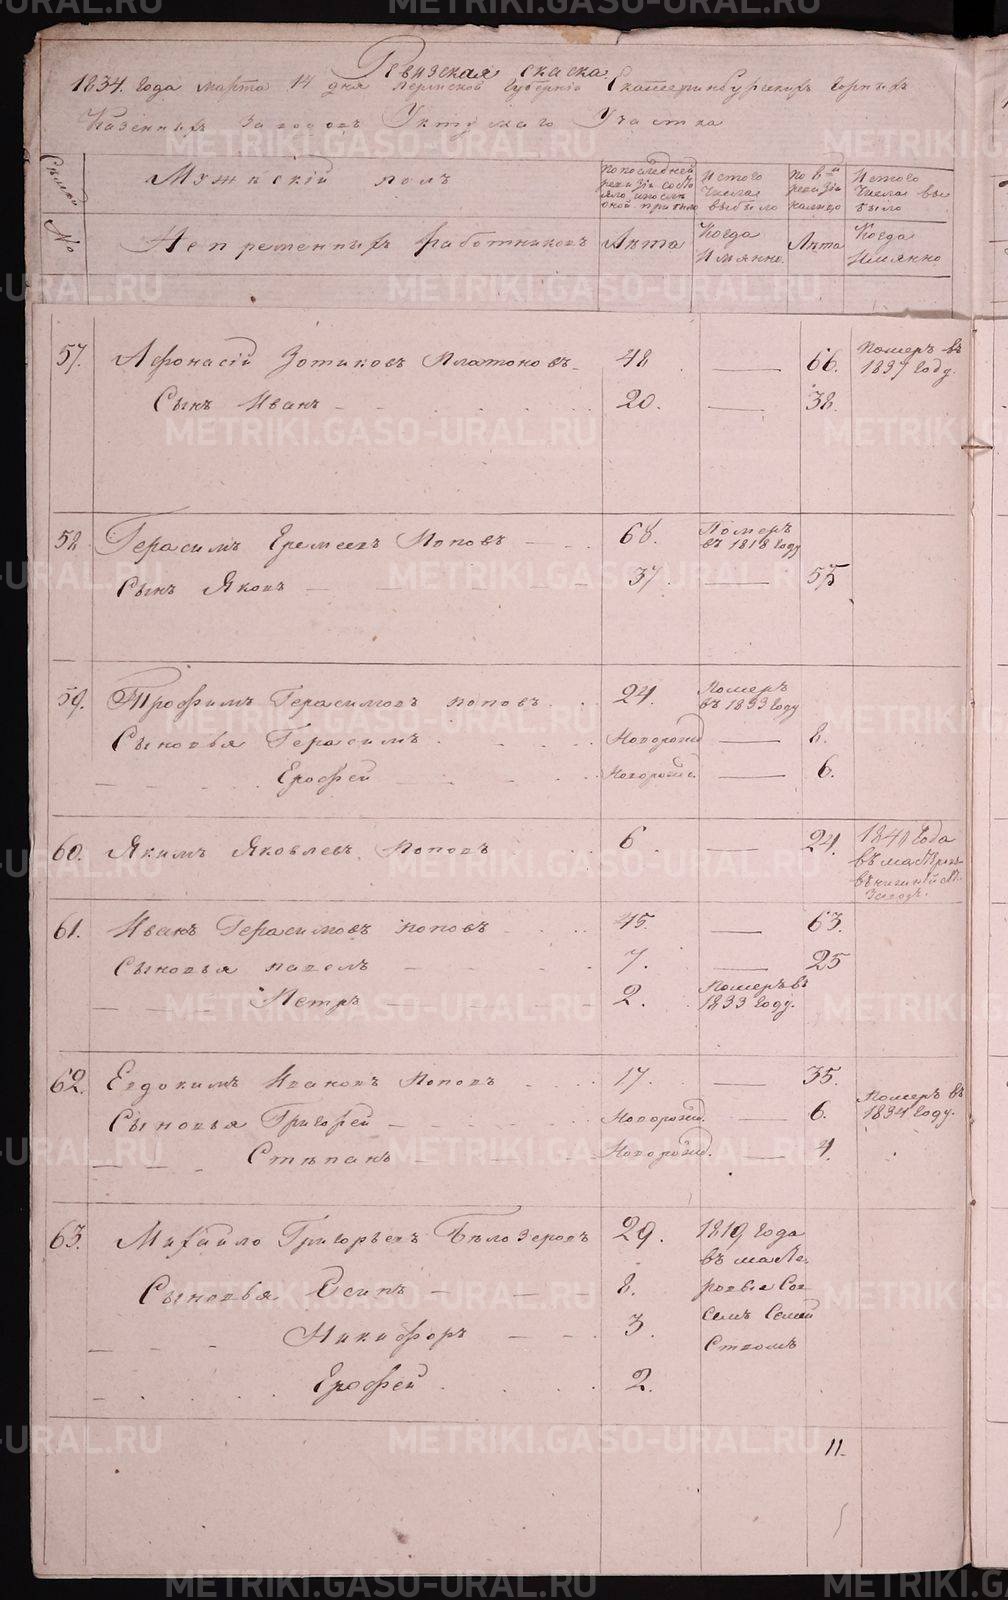 Ревизская скаска
1834. года марта 14 дня Пермской Губернiи Екатеринбургскихъ горныхъ
Казенныхъ Заводовъ Уктускаго Участка
Семьи №
Мужескiй полъ
По последней ревизiи состояло и после оной прибыло
Из того числа выбыло
По 8й ревизiи налицо
Из того числа выбыло
Непременныхъ работниковъ
Лета
Когда имянно
Лета
Когда имянно
57. Афонасiй Зотиковъ Платоновъ 48 66. Померъ въ 1837 году.
Сынъ Иванъ 20. 38.
58. Герасимъ Еремеевъ Поповъ 68. Померъ въ 1818 году
Сынъ Яковъ 37. 55
59. Трофимъ Герасимовъ поповъ 24. Померъ въ 1833 году
Сыновья Герасимъ Новорожд 8.
Ерофей Новорожд. 6.
60. Якимъ Яковлевъ Поповъ 6 24. 1841 года
61. Иванъ Герасимовъ поповъ 45. 63.
Сыновья павелъ 7. 25
Петръ 2. Померъ въ 1833 году.
62. Евдокимъ Ивановъ Поповъ 17. 35.
Сыновья Григорей Новорожд. 6. Померъ въ 1834 году.
Степанъ Новорожд. 4.
63. Михайло Григорьевъ Белозеровъ 29. 1819 года
въ мастеровые Со всемъ Семейством
Сыновья Осипъ 8.
Никифоръ 3.
Ерофей 2.
11.
METRIKI.GASO-URAL.RU